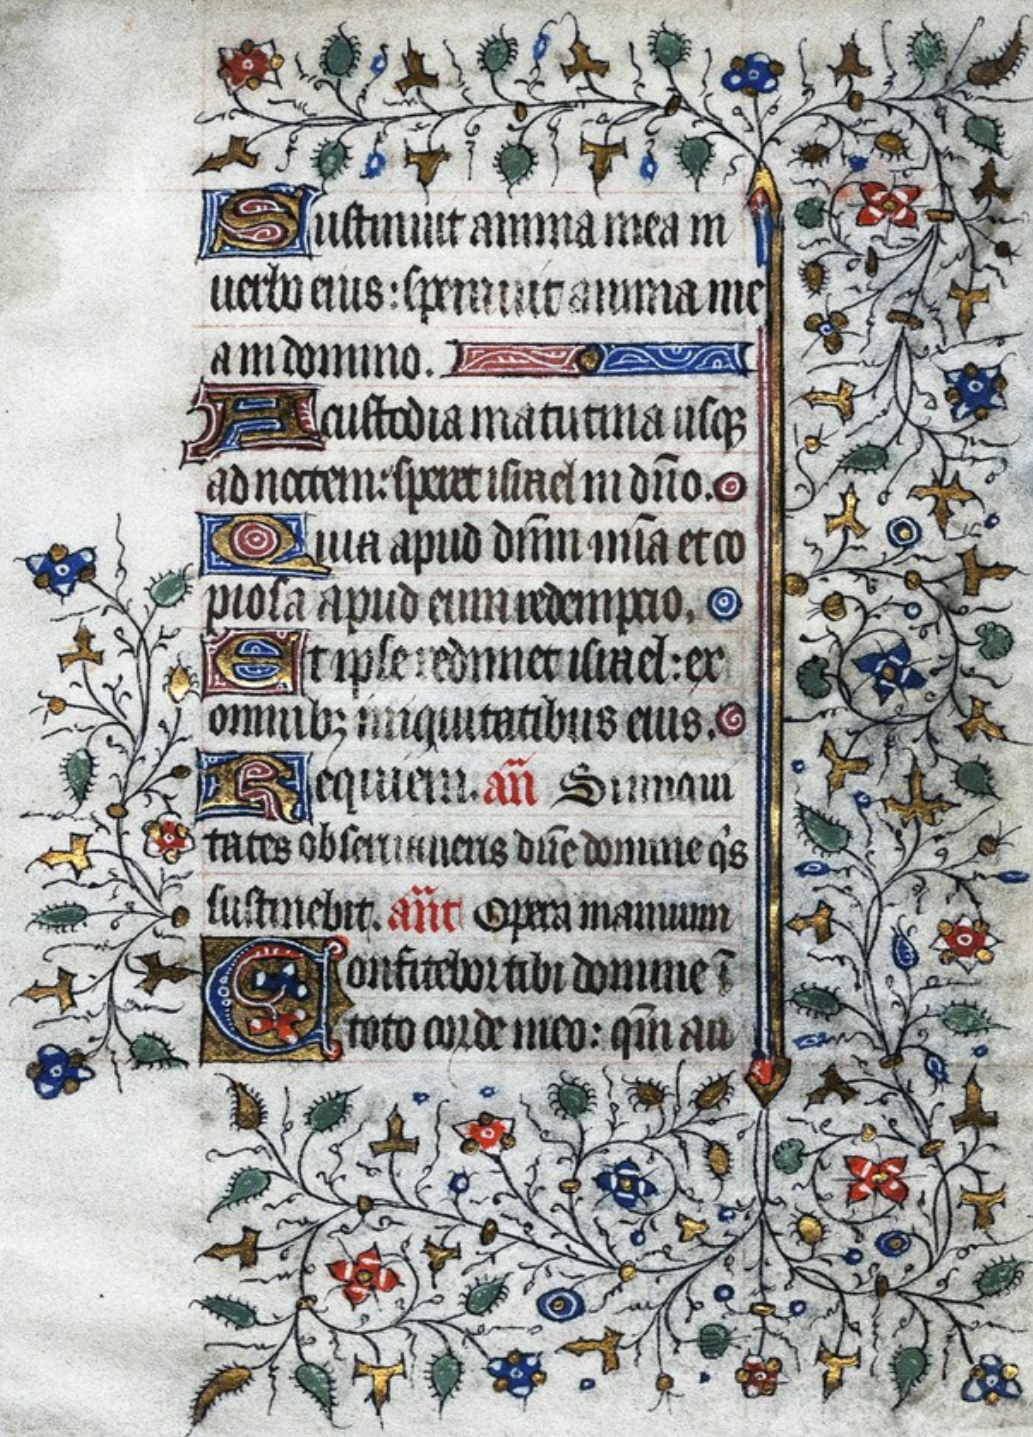 Sustinuit anima mea in
verbo eius: speravit anima me
a in domino.
A custodia matutina usq̢
ad noctem: speret israel in dn̄o.
Quia apud dn̄m mīa et co
piosa apud eum redempcio.
Et ipse redimet israel: ex
omnibꝫ iniquitatibus eius.
Requiem. an̄ Si iniqui
tates observaveris dn̄e domine q̇s
sustinebit. an̄t Opera manuum
Confitebor tibi domine ī
toto corde meo: qm̄ au